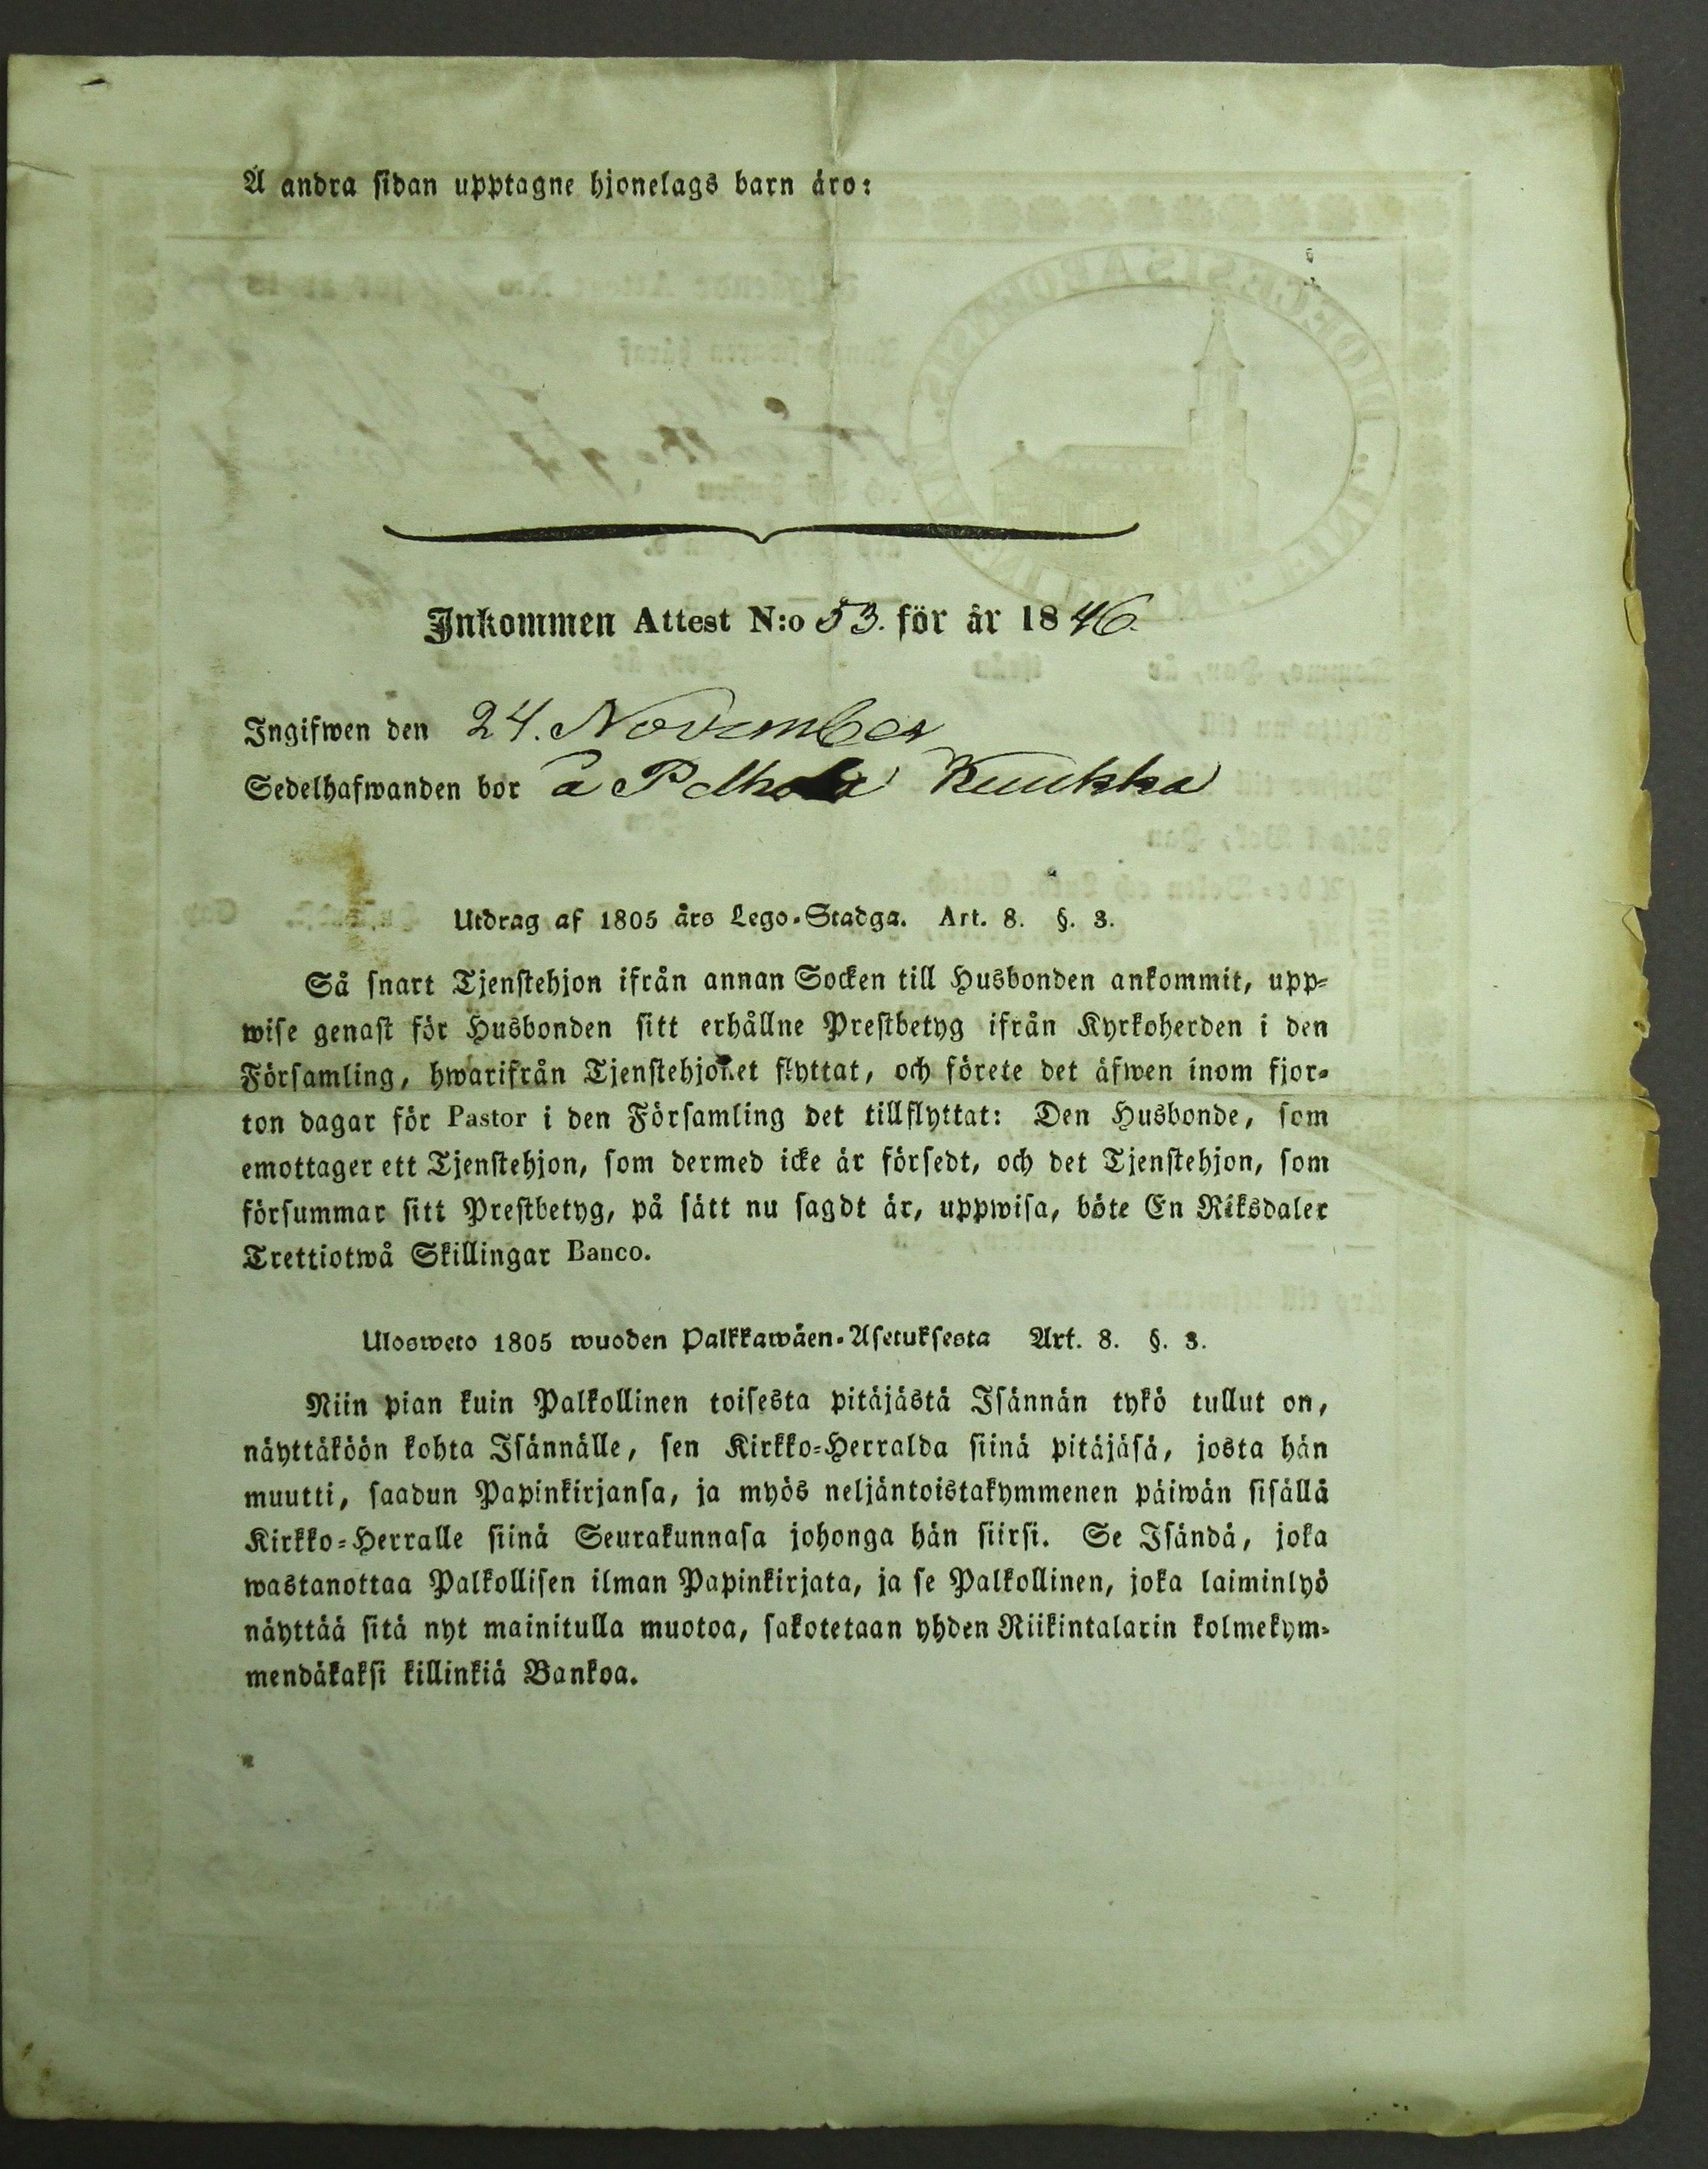 Å andra sidan upptagne hjonelags barn äro:
Inkommen Attest N:o 53. för år 1846.
Ingifwen den 24. November
Sedelhafwanden bor å Kuukka
Utdrag af 1805 års Lego-Stadga. Art. 8. §. 3.
Så snart Tjenstehjon ifrån annan Socken till Husbonden ankommit, upp-
wise genast för Husbonden sitt erhållne Prestbetyg ifrån Kyrkoherden i den
Församling, hwarifrån Tjenstehjonet flyttat, och förete det äfwen inom fjor-
ton dagar för Pastor i den Församling det tillflyttat: Den Husbonde, som
emottager ett Tjenstehjon, som dermed icke är försedt, och det Tjenstehjon, som
försummar sitt Prestbetyg, på sätt nu sagdt är, uppwisa, böte En Riksdaler
Trettiotwå Skillingar Banco.
Ulosweto 1805 wuoden Palkkawäen-Asetuksesta Art. 8. §. 3.
Niin pian kuin Palkollinen toisesta pitäjästä Isännän tykö tullut on,
näyttäköön kohta Isännälle, sen Kirkko-Herralda siinä pitäjäsä, josta hän
muutti, saadun Papinkirjansa, ja myös neljäntoistakymmenen päiwän sisällä
Kirkko-Herralle siinä Seurakunnasa johonga hän siirsi. Se Isändä, joka
wastanottaa Palkollisen ilman Papinkirjata, ja se Palkollinen, joka laiminlyö
näyttää sitä nyt mainitulla muotoa, sakotetaan yhden Riikintalarin kolmekym-
mendäkaksi killinkiä Bankoa.